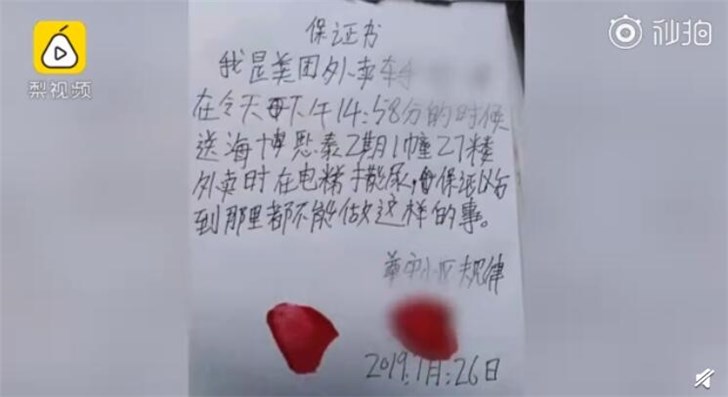 梨视频
秒拍
保证书
我是美团外卖车手
在今天下午14:58分的时候
送海博熙泰2期1幢27楼
外卖时在电梯撒尿,保证以后
到那里都不能做这样的事。
小区规律
2019.7月:26日